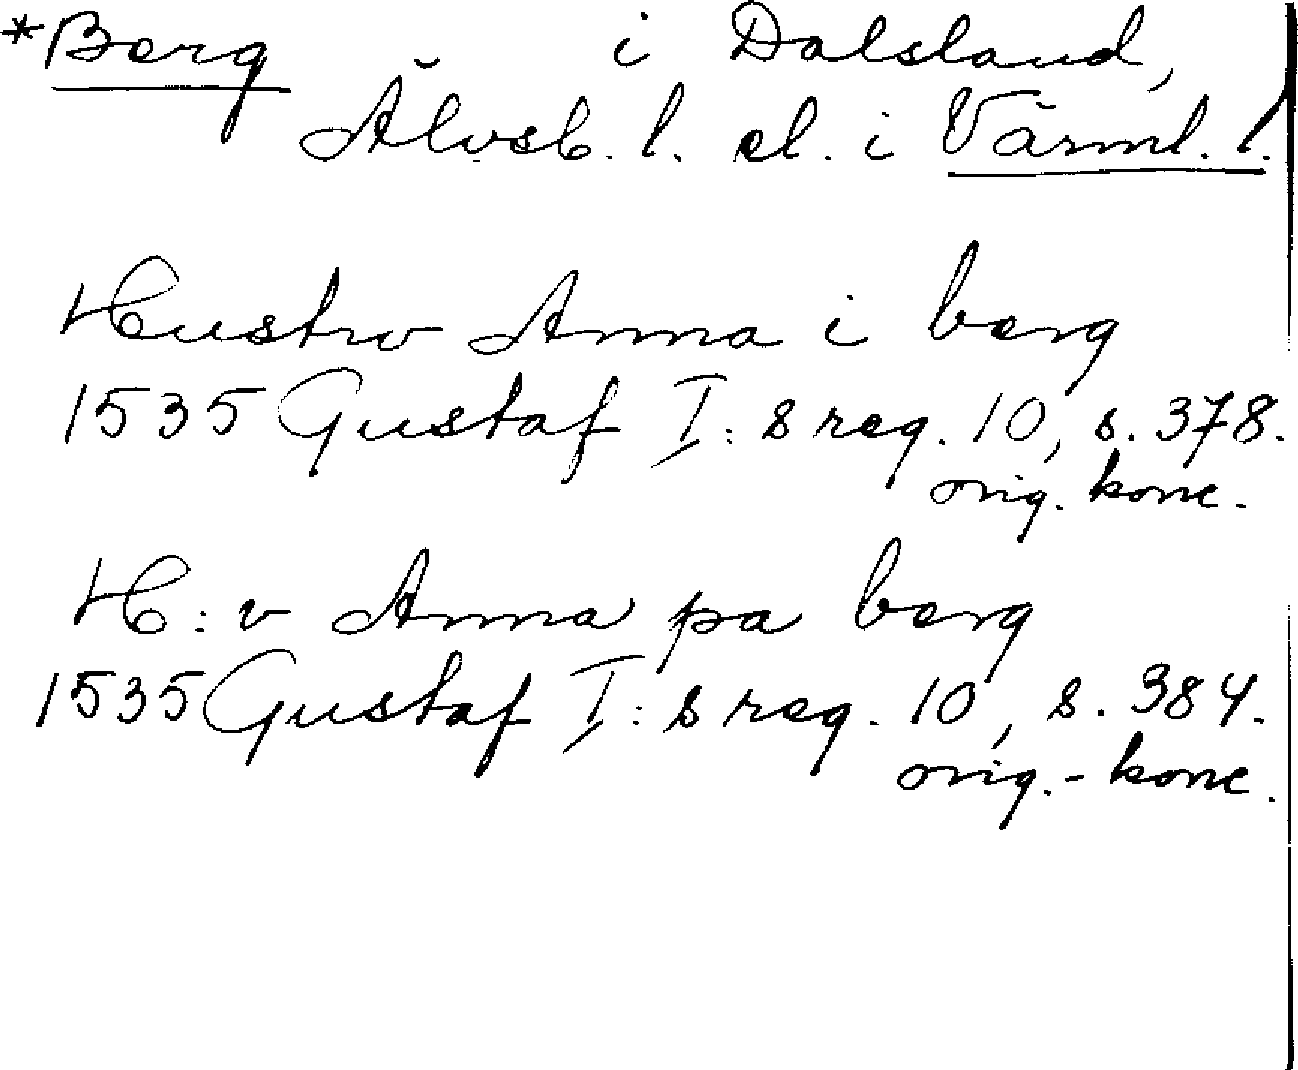 *Berg i Dalsland,
Älvsb. l. el. i Värml. l.
Hustrv Anna i berg
1535 Gustaf I:s reg. 10, s. 378.
orig. konc.
H:v Anna pa berg
1535 Gustaf I:s reg. 10, s. 384.
orig.-konc.